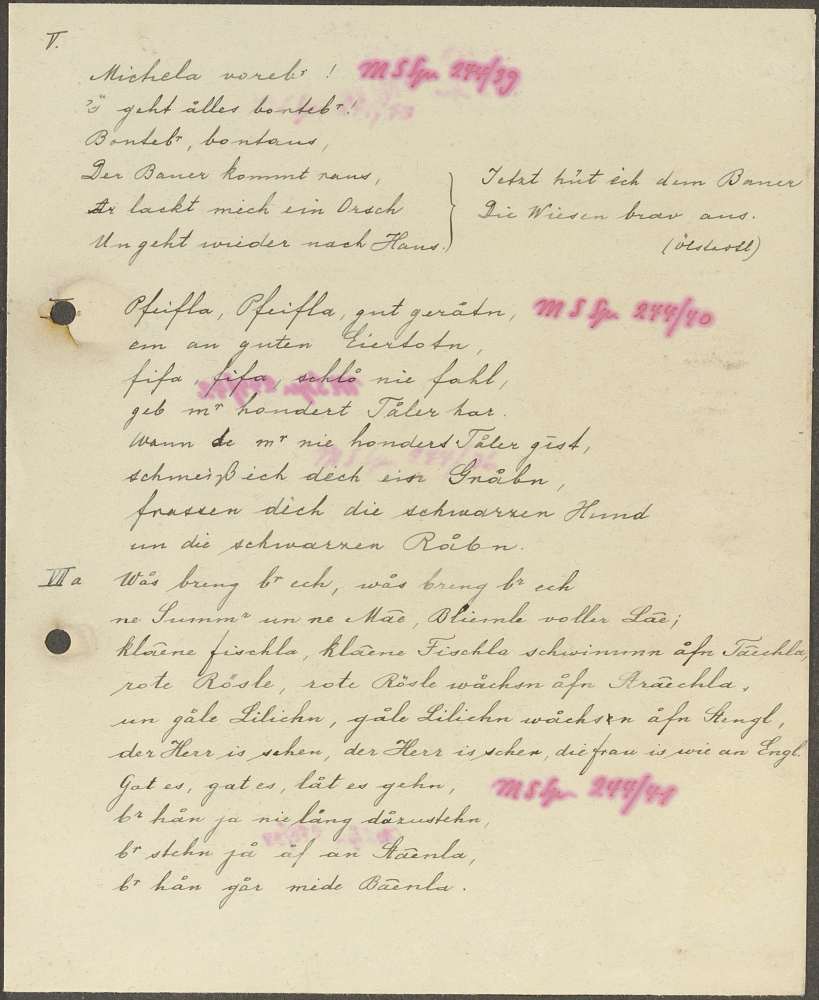 V.
Michela voreb^r ! M S Spr 244/39
's geht ålles bonteb^r!
Bonteb^r, bontaus,
Der Bauer kommt raus,
lackt mich ein Orsch
Un geht wieder nach Haus.
Jetzt hüt ich dem Bauer
Die Wiesen brav aus.
Pfeifla, Pfeifla, gut geråtn, M S Spr 244/40
em an guten Eiertotn,
fifa, fifa, schlå nie fahl,
geb m^r hondert Tåler har.
wann de m^r nie hondert Tåler gist,
schmeiß ich dich ein Gråbn,
frassen dich die schwarzen Hund
un die schwarzen Råbn.
VII a Wås breng b^r ech, wås breng b^r ech
ne Summ^r un ne Mäe, Bliemle voller Läe;
kläene fischla, kläene Fischla schwimmn åfn Täechla,
rote Rösle, rote Rösle wåchsn åfn Sträechla,
un gåle Lilichn, gåle Lilichn wåchsn åfn Stengl,
der Herr is schen, der Herr is schen, die frau is wie an Engl.
Gat es, gat es, låt es gehn, M S Spr 244/41
b^r hån ja nie lång dåzustehn,
b^r stehn jå äf an Stäenla,
b^r hån går mide Bäenla.